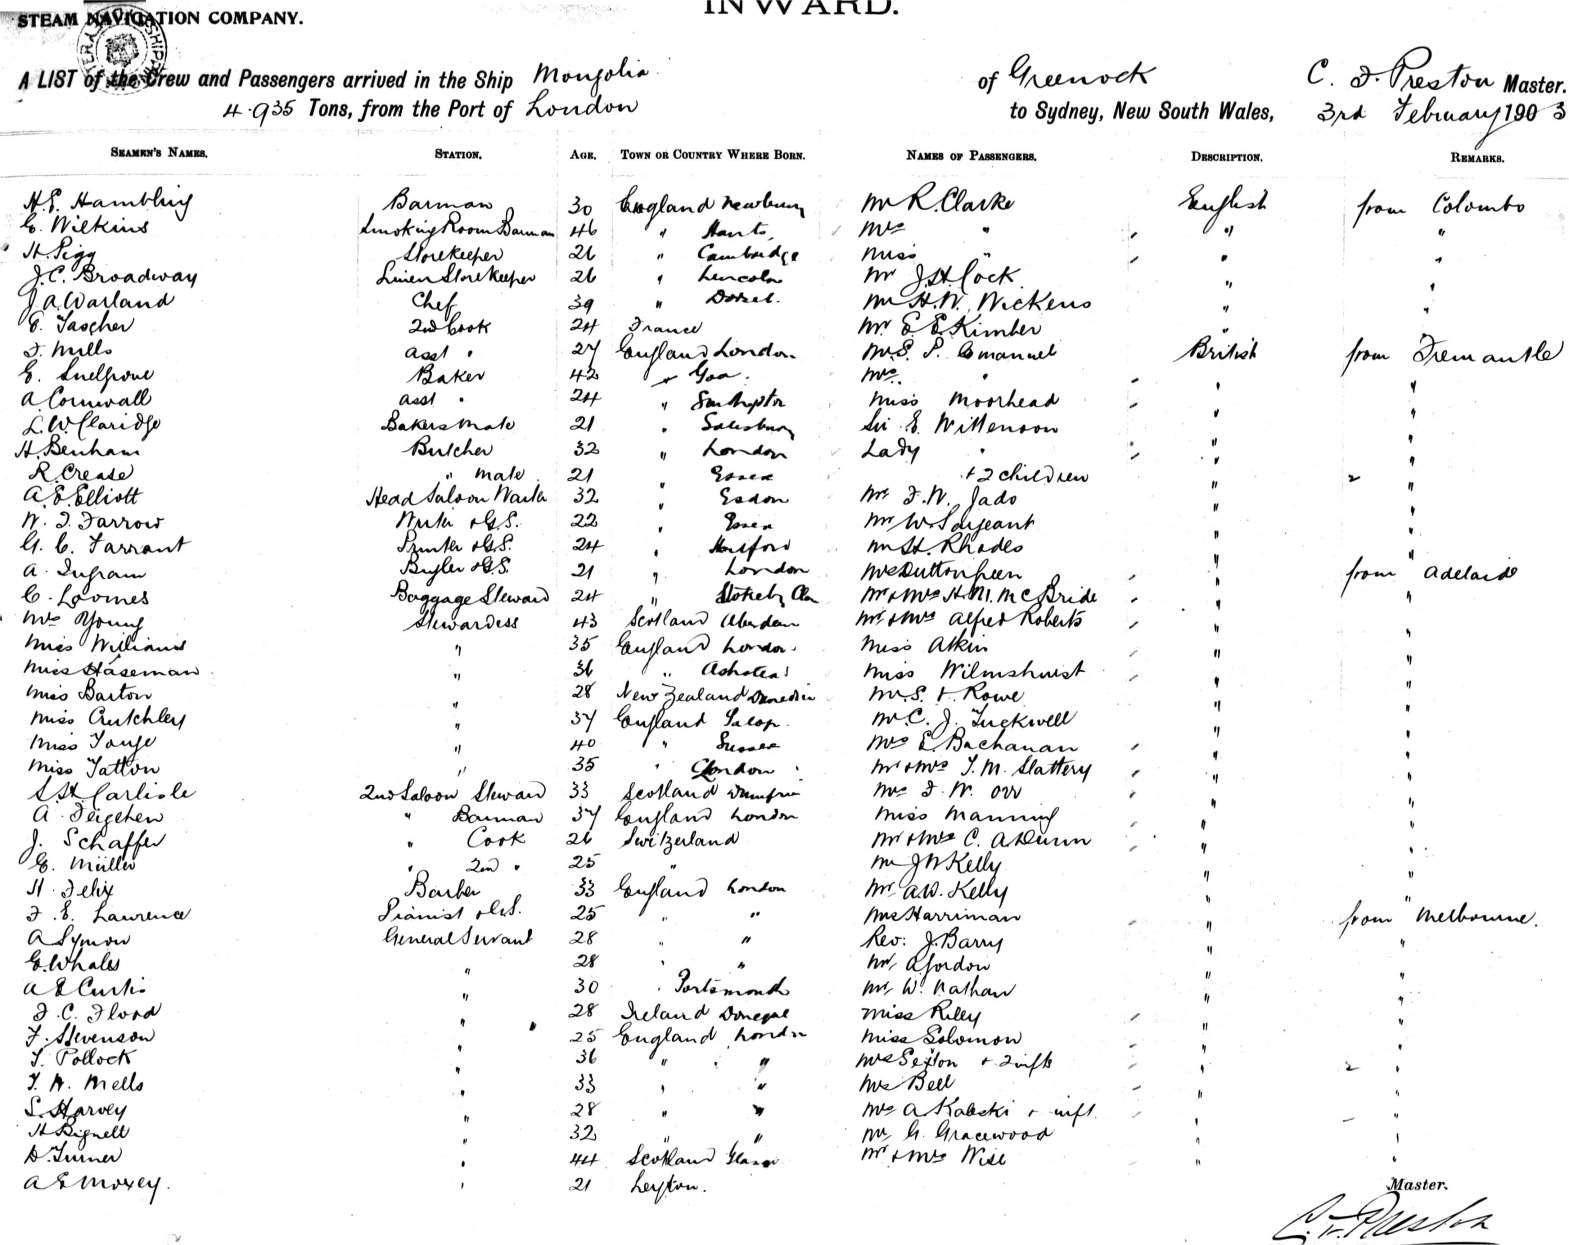 INWARD.
STEAM NAVIGATION COMPANY.
A LIST of the Crew and Passengers arrived in the Ship Mongolia of Greenock C. F. Preston Master.
4.935 Tons, from the Port of London to Sydney, New South Wales, 3rd February 1903
SEAMEN'S NAMES. STATION. AGE. TOWN OR COUNTRY WHERE BORN. NAMES OF PASSENGERS. DESCRIPTION. REMARKS.
H.E. Hambling Barman 30 England Newbury Mr R. Clarke English from Colombo
E. Wilkins Smoking Room Barman 46 " Hants Mrs " " "
H. Pigg Storekeeper 26 " Cambridge Miss " " "
J.C. Broadway Linen Storekeeper 26 " Lincoln Mr J.H. Cock " "
J.A. Warland Chef 39 " Dorset Mr H.W. Wickens " "
E. Tascher 2nd Cook 24 France Mr E.E. Kimber "
F. Mills asst " 27 England London Mr S. P. Emanuel British from Fremantle
E. Snelgrove Baker 42 " Goa. Mrs " " "
A. Cornwall asst " 24 " Southampton Miss Moorhead " "
L.W. Claridge Bakers Mate 21 " Salisbury Sir E. Wittenoom " "
H. Benham Butcher 32 " London Lady " " "
R. Crease " mate 21 " Essex + 2 children " 2 "
A.E. Elliott Head Saloon Waiter 32 " Mr F.W. Jado " "
W. F. Farrow Writer & G.S. 22 " Essex Mr W. Sargeant " "
G. C. Farrant Printer & G.S. 24 " Mr H. Rhodes " "
A. Ingram Bugler & G.S. 21 " London Mrs Dutton Green " from Adelaide
C. Loomes Baggage Steward 24 " Mr & Mrs H.M. McBride " "
Mrs Young Stewardess 43 Scotland Aberdeen Mr & Mrs Alfred Roberts " "
Miss Williams " 35 England London Miss Atkin " "
Miss Haseman " 36 " Ashstead Miss Wilmshurst " "
Miss Barton " 28 New Zealand Dunedin Mr S. Rowe " "
Miss Crutchley " 37 England Salop. Mr C. J. Tuckwell " "
Miss Tonge " 40 " Sussex Mrs E. Bachanan " "
Miss Tatton " 35 " London Mr & Mrs T.M. Slattery " "
S.H. Carlisle 2nd Saloon Steward 33 Scotland Dumfries Mrs F. W. Orr " "
A. Teigehen " Barman 37 England London Miss Manning " "
J. Schaffer " Cook 26 Switzerland Mr & Mrs C. A. Dunn " "
E. Müller " 2nd " 25 " Mr J W Kelly " "
H. Felix Barber 33 England London Mr A.W. Kelly " "
F. E. Lawrence Pianist & G.S. 25 " " Mrs Harriman " from Melbourne.
A Symon General Servant 28 " " Rev. J. Barry " "
E. Whales " 28 " " Mr A Gordon " "
A E Curtis " 30 " Portsmouth Mr W. Nathan " "
F. C. Flood " 28 Ireland Donegal Miss Riley " "
F. Stevenson " 25 England London Miss Solomon " "
T. Pollock " 36 " " Mrs Sexton + 2 infts " 2 "
T. W. Mells " 33 " " Mrs Bell " "
S. Harvey " 28 " " Mrs A Kabeski + inft. " "
H Bignell " 32 " " Mr G. Gracewood " "
D. Turner " 44 Scotland Glasgow Mr & Mrs Wise " "
A E Moxey. " 21 Leyton.
Master.
C. F. Preston